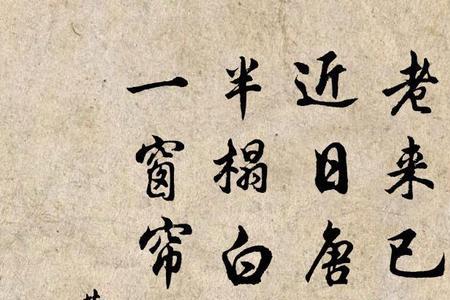 老来已
近日唐
半榻白
一窗帘